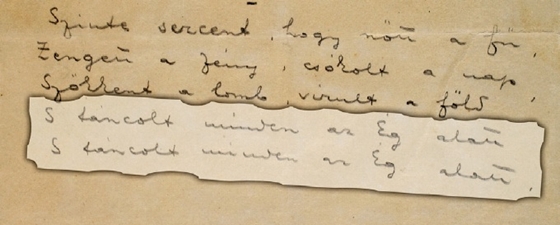 Szinte sercent, hogy nőtt a fű,
Zengett a fény, csókolt a nap,
Szökkent a lomb, virult a föld
S táncolt minden az Ég alatt
S táncolt minden az Ég alatt.